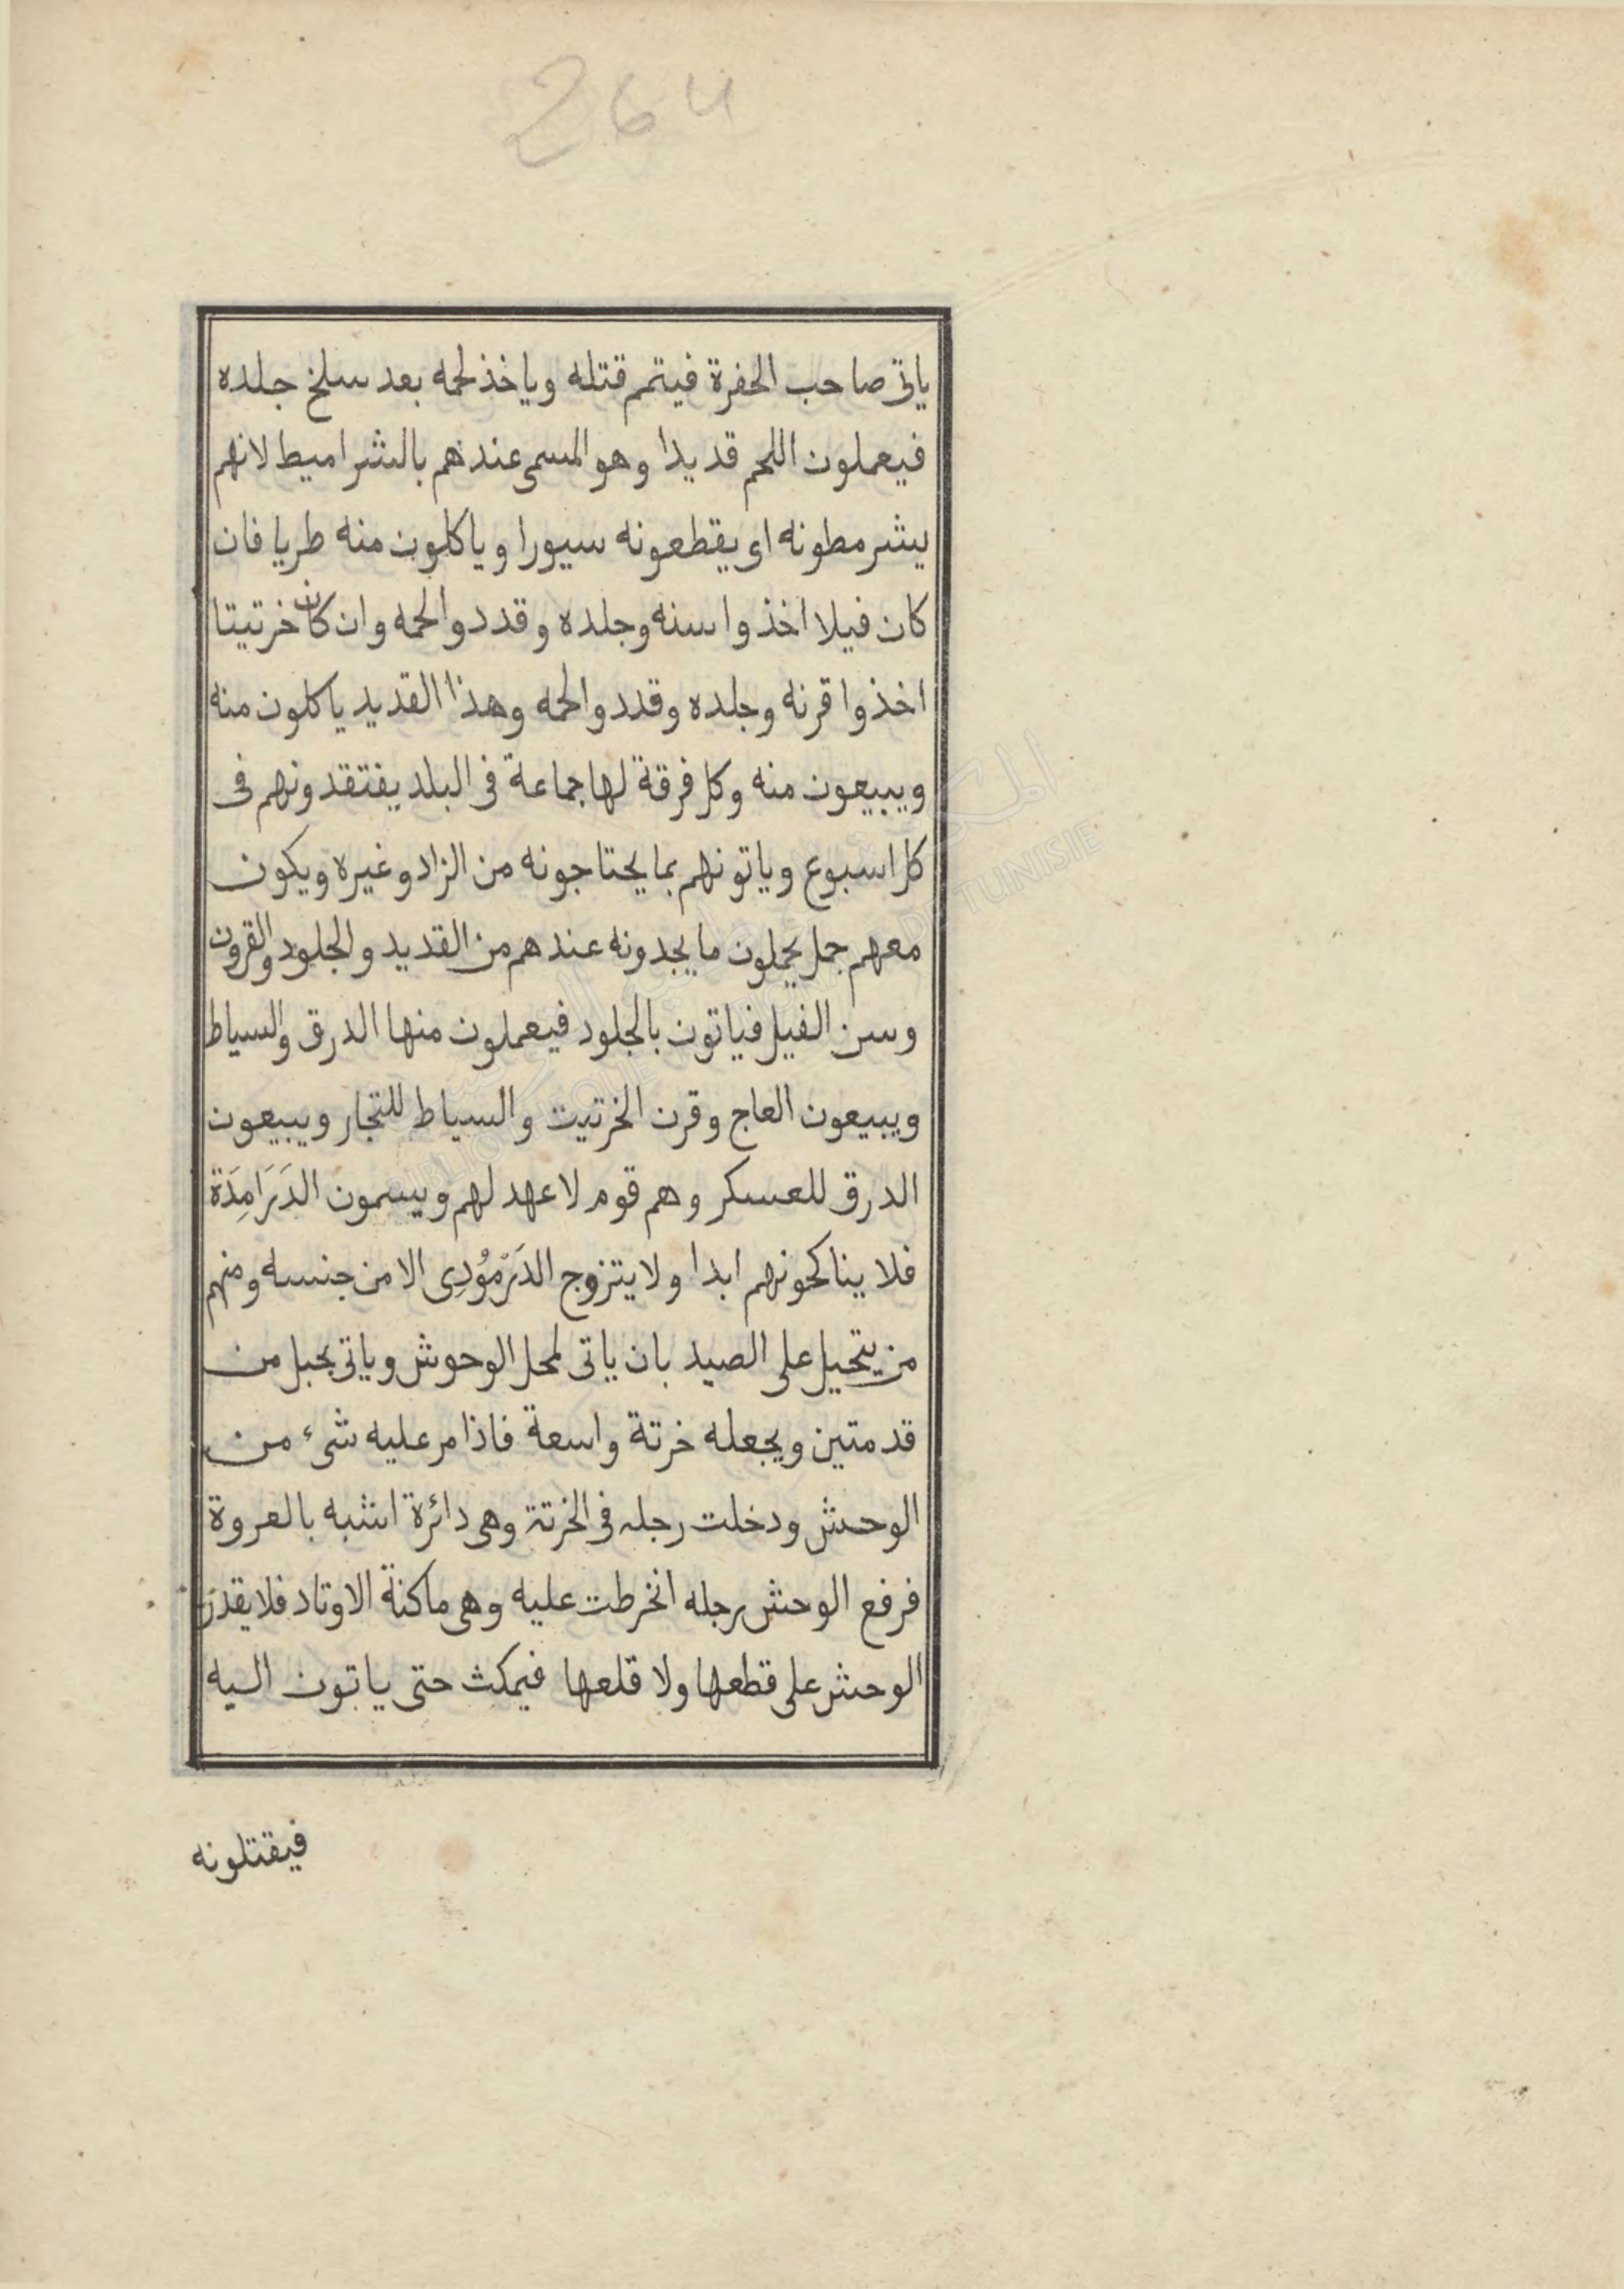 264
ياتى صاحب الحفرة فيتم قتله وياخذ لحمه بعد سلخ جلده
فيعملون اللحم قديدا وهو المسمى عندهم بالشراميط لانهم
يشرمطونه اى يقطعونه سيورا وياكلون منه طريا فان
كان فيلا اخذوا سنه وجلده وقددوا لحمه وان كان خرتيتا
اخذوا قرنه وجلده وقددوا لحمه وهذا القديد ياكلون منه
ويبيعون منه وكل فرقة لها جماعة فى البلد يفتقدونهم فى
كل اسبوع وياتونهم بما يحتاجونه من الزاد وغيره ويكون
معهم جمل يحملون ما يجدونه عندهم من القديد والجلود والقرون
وسن الفيل فياتون بالجلود فيعملون منها الدرق والسياط
ويبيعون العاج وقرن الخرتيت والسياط للتجار ويبيعون
الدرق للعسكر وهم قوم لا عهد لهم ويسمون الدَرَامِدَة
فلا يناكحونهم ابدا ولا يتزوج الدَرْمُودِى الا من جنسه ومنهم
من يتحيل على الصيد بان ياتى لمحل الوحوش وياتى بحبل من
قد متين ويجعله خرتة واسعة فاذا مر عليه شىء من
الوحش ودخلت رجله فى الخرتة وهى دائرة اشبه بالعروة
فرفع الوحش رجله انخرطت عليه وهى ماكنة الاوتاد فلا يقدر
الوحش على قطعها ولا قلعها فيمكث حتى ياتون اليه
فيقتلونه
BIBLIOTHEQUE NATIONALE DE TUNISIE